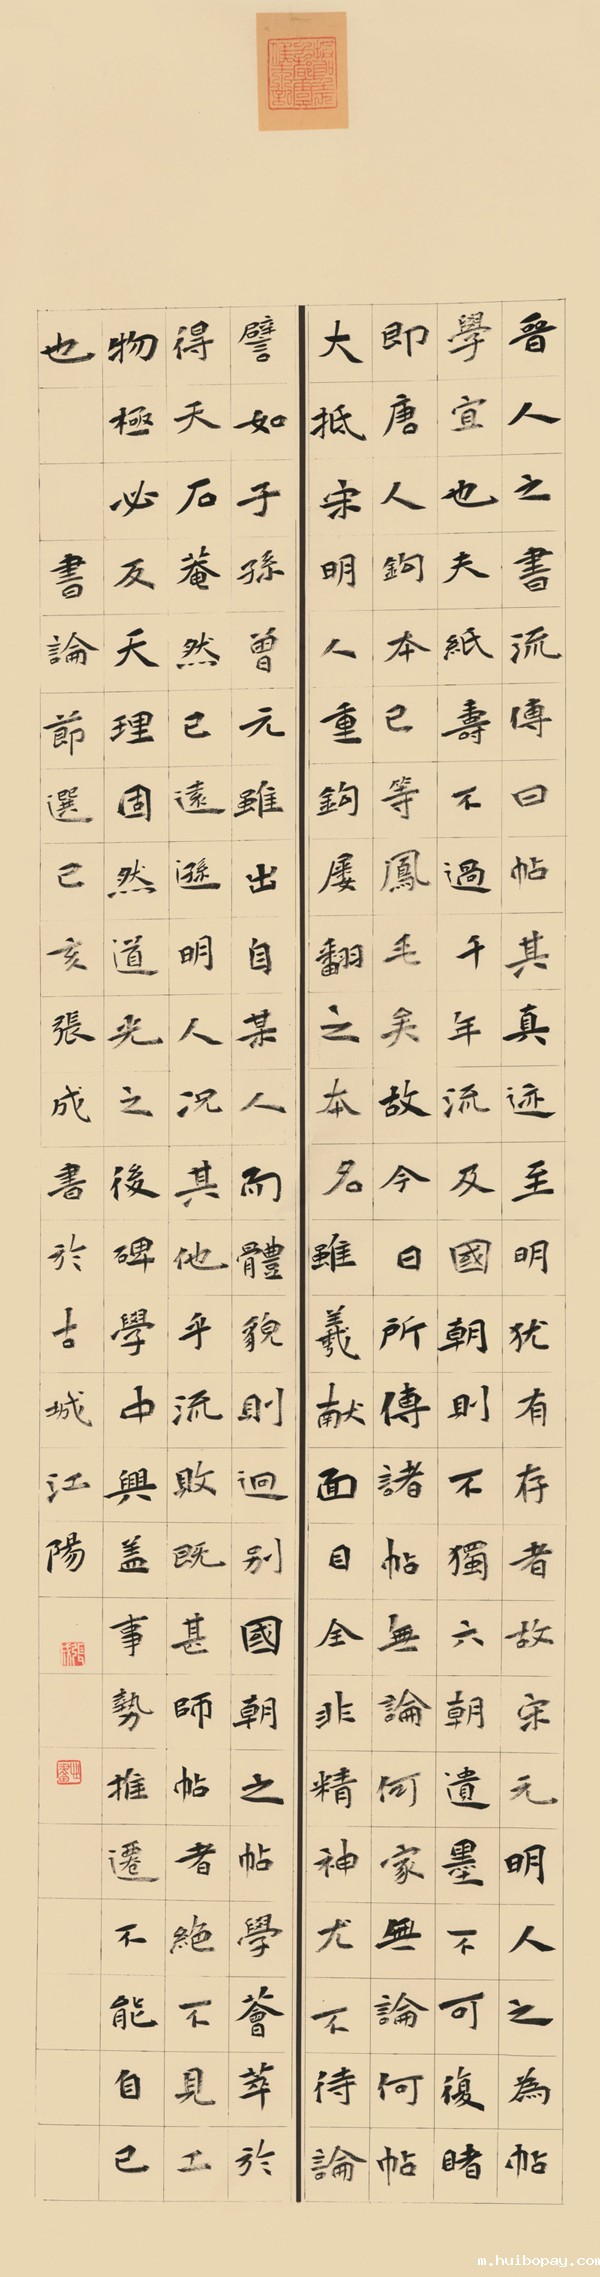 晉人之書流傳曰帖其真迹至明犹有存者故宋元明人之為帖
學宜也夫紙壽不過千年流及國朝則不獨六朝遺墨不可復睹
即唐人鉤本已等鳳毛矣故今日所傳諸帖無論何家無論何帖
大抵宋明人重鉤屡翻之本名雖羲献面目全非精神尤不待論
譬如子孫曾元雖出自某人而體貌則迥别國朝之帖學薈萃於
得天石菴然已遠遜明人况其他乎流敗既甚師帖者絶不見工
物極必反天理固然道光之後碑學中興盖事勢推遷不能自已
也
書論節選己亥張成書於古城江陽
m.huibopay.com